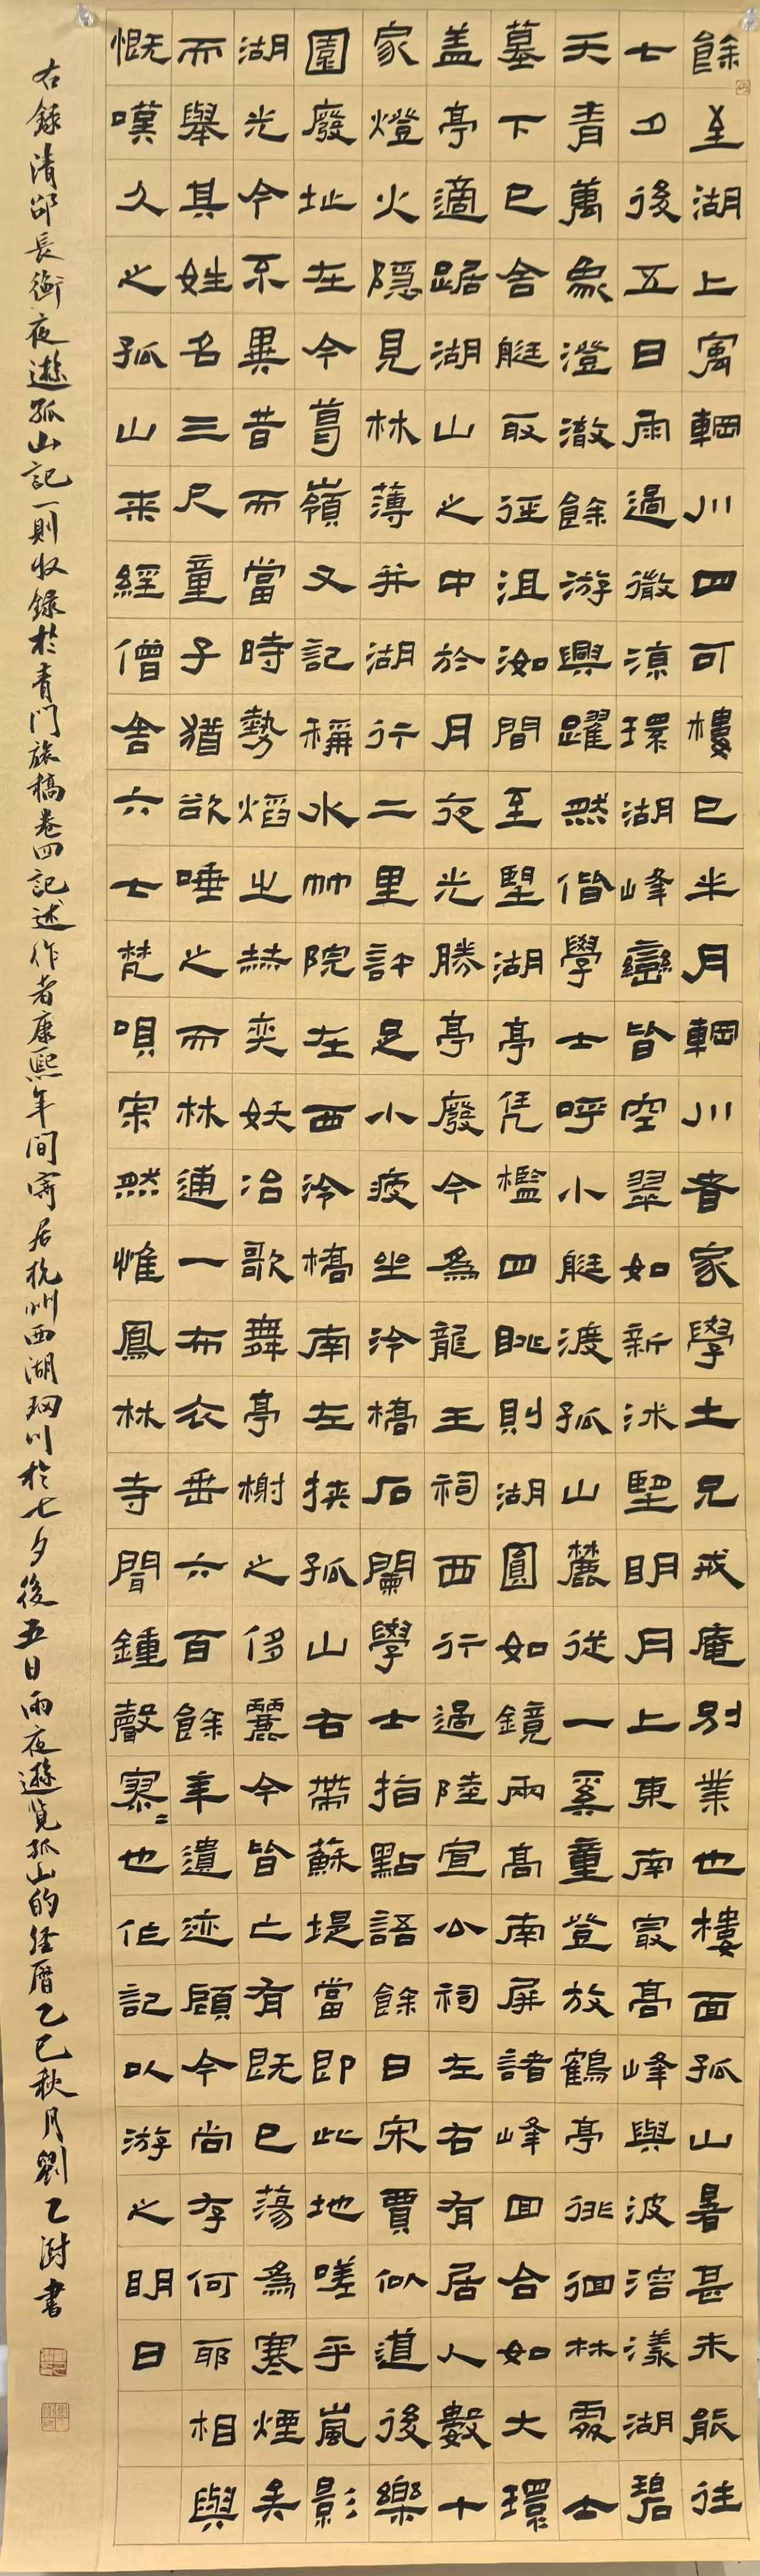 餘至湖上寓輞川四可樓已半月輞川者家學士兄戒庵別業也樓面孤山暑甚未能往
七夕後五日雨過微涼環湖峰巒皆空翠如新沐望明月上東南最高峰與波溶漾湖碧
天青萬象澄澈餘游興躍然偕學士呼小艇渡孤山麓從一奚童登放鶴亭徘徊林處士
墓下已舍艇取徑沮洳間至望湖亭凭檻四眺則湖圓如鏡兩高南屏諸峰回合如大環
盖亭適踞湖山之中於月夜尤勝亭廢今為龍王祠西行過陸宣公祠左右有居人數十
家燈火隱見林薄并湖行二里許足小疲坐泠橋石闌學士指點語餘曰宋賈似道後樂
園廢址在今葛嶺又記稱水竹院在西泠橋南左挟孤山右帶蘇堤當即此地嗟乎嵐影
湖光今不異昔而當時勢熖之赫奕妖冶歌舞亭榭之侈麗今皆亡有既已蕩為寒煙矣
而舉其姓名三尺童子猶欲唾之而林逋一布衣垂六百餘年遺迹顧今尚存何耶相與
慨嘆久之孤山來經僧舍六七梵唄寂然惟鳳林寺聞鍾聲寥〻也作記以游之明日
右録清邵長衡夜遊孤山記一則收錄於青門旅稿卷四記述作者康熙年間寓居杭州西湖輞川於七夕後五日雨夜遊览孤山的经曆乙巳秋月劉乙澍書